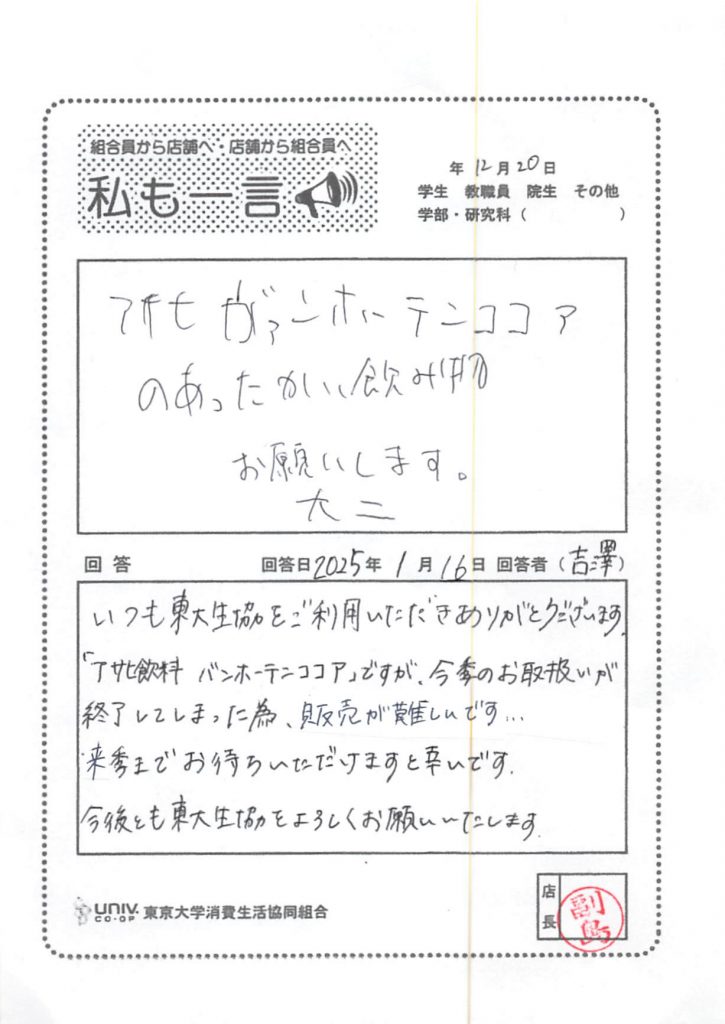 組合員から店舗へ・店舗から組合員へ
私も一言
年 12月 20日
学生 教職員 院生 その他
学部・研究科 ( )
アサヒ ヴァンホーテンココア
のあったかい、飲み物
お願いします。
大二
回答 回答日 2025年 1月 16日 回答者 (吉澤)
いつも東大生協をご利用いただきありがとうございます。
「アサヒ飲料 バンホーテンココア」ですが、今季のお取扱いが
終了してしまった為、販売が難しいです…
来季までお待ちいただけますと幸いです。
今後とも東大生協をよろしくお願いいたします。
UNIV. CO-OP 東京大学消費生活協同組合
店長
副島